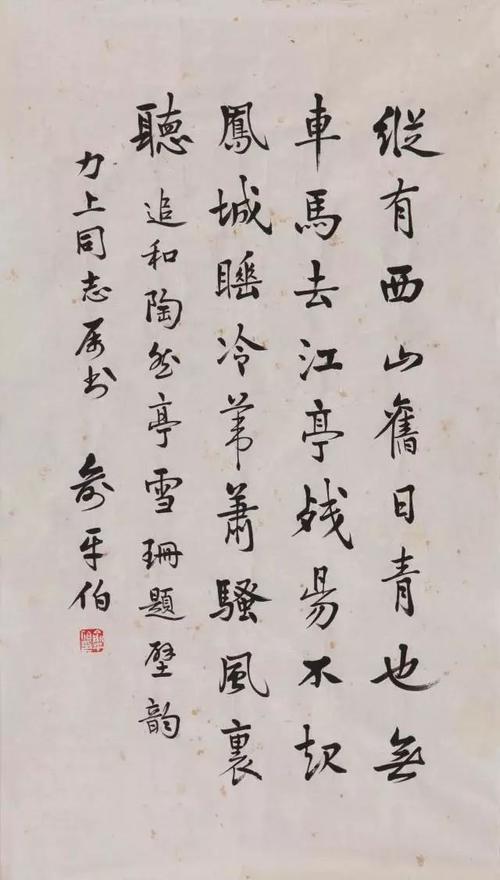 縱有西山舊日青也無
車馬去江亭残昜不起
鳳城睡冷葦蕭騷風裏
聽 追和陶然亭雪珊題壁韵
力上同志属书 俞平伯